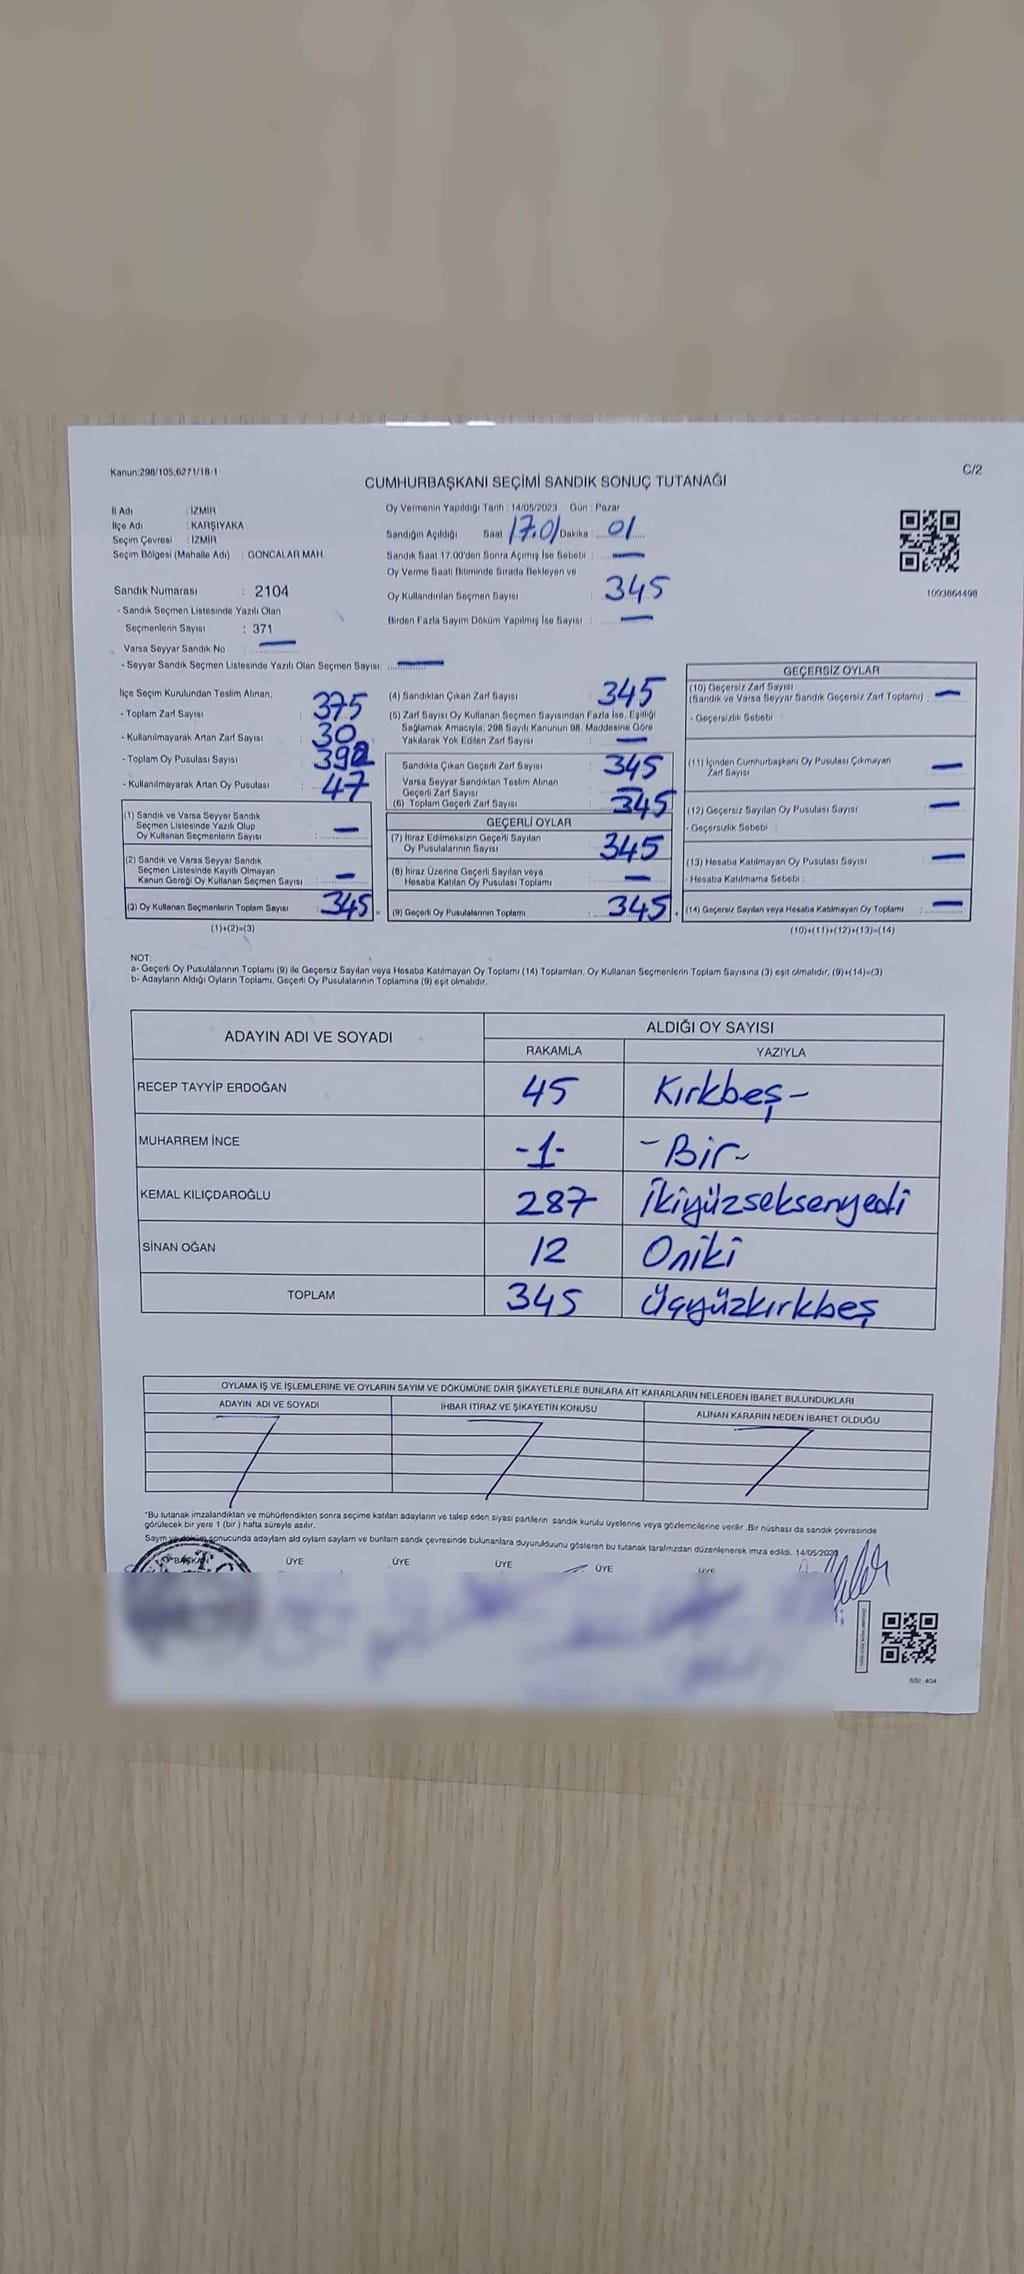 Kanun:298/105,6271/18-1
C/2
CUMHURBAŞKANI SEÇİMİ SANDIK SONUÇ TUTANAĞI
İl Adı : İZMİR
İlçe Adı : KARŞIYAKA
Seçim Çevresi : İZMİR
Seçim Bölgesi (Mahalle Adı) : GONCALAR MAH.
Sandık Numarası : 2104
- Sandık Seçmen Listesinde Yazılı Olan
Seçmenlerin Sayısı : 371
Varsa Seyyar Sandık No : —
- Seyyar Sandık Seçmen Listesinde Yazılı Olan Seçmen Sayısı: —
Oy Vermenin Yapıldığı Tarih : 14/05/2023 Gün : Pazar
Sandığın Açıldığı Saat 17.0/ Dakika : 01
Sandık Saat 17:00'den Sonra Açılmış İse Sebebi : —
Oy Verme Saati Bitiminde Sırada Bekleyen ve
Oy Kullandırılan Seçmen Sayısı : 345
Birden Fazla Sayım Döküm Yapılmış İse Sayısı : —
1093864498
İlçe Seçim Kurulundan Teslim Alınan;
- Toplam Zarf Sayısı : 375
- Kullanılmayarak Artan Zarf Sayısı : 30
- Toplam Oy Pusulası Sayısı : 392
- Kullanılmayarak Artan Oy Pusulası : 47
(1) Sandık ve Varsa Seyyar Sandık
Seçmen Listesinde Yazılı Olup
Oy Kullanan Seçmenlerin Sayısı : —
(2) Sandık ve Varsa Seyyar Sandık
Seçmen Listesinde Kayıtlı Olmayan
Kanun Gereği Oy Kullanan Seçmen Sayısı : —
(3) Oy Kullanan Seçmenlerin Toplam Sayısı : 345
(1)+(2)=(3)
(4) Sandıktan Çıkan Zarf Sayısı : 345
(5) Zarf Sayısı Oy Kullanan Seçmen Sayısından Fazla İse, Eşitliği
Sağlamak Amacıyla; 298 Sayılı Kanunun 98. Maddesine Göre
Yakılarak Yok Edilen Zarf Sayısı : —
Sandıkta Çıkan Geçerli Zarf Sayısı : 345
Varsa Seyyar Sandıktan Teslim Alınan
Geçerli Zarf Sayısı : —
(6) Toplam Geçerli Zarf Sayısı : 345
GEÇERLİ OYLAR
(7) İtiraz Edilmeksizin Geçerli Sayılan
Oy Pusulalarının Sayısı : 345
(8) İtiraz Üzerine Geçerli Sayılan veya
Hesaba Katılan Oy Pusulası Toplamı : —
(9) Geçerli Oy Pusulalarının Toplamı : 345
GEÇERSİZ OYLAR
(10) Geçersiz Zarf Sayısı
(Sandık ve Varsa Seyyar Sandık Geçersiz Zarf Toplamı) : —
- Geçersizlik Sebebi :
(11) İçinden Cumhurbaşkanı Oy Pusulası Çıkmayan
Zarf Sayısı : —
(12) Geçersiz Sayılan Oy Pusulası Sayısı : —
- Geçersizlik Sebebi :
(13) Hesaba Katılmayan Oy Pusulası Sayısı : —
- Hesaba Katılmama Sebebi :
(14) Geçersiz Sayılan veya Hesaba Katılmayan Oy Toplamı : —
(10)+(11)+(12)+(13)=(14)
NOT:
a- Geçerli Oy Pusulalarının Toplamı (9) ile Geçersiz Sayılan veya Hesaba Katılmayan Oy Toplamı (14) Toplamları, Oy Kullanan Seçmenlerin Toplam Sayısına (3) eşit olmalıdır. (9)+(14)=(3)
b- Adayların Aldığı Oyların Toplamı, Geçerli Oy Pusulalarının Toplamına (9) eşit olmalıdır.
ADAYIN ADI VE SOYADI ALDIĞI OY SAYISI
RAKAMLA YAZIYLA
RECEP TAYYİP ERDOĞAN 45 Kırkbeş-
MUHARREM İNCE -1- -Bir-
KEMAL KILIÇDAROĞLU 287 İkiyüzseksenyedi
SİNAN OĞAN 12 Oniki
TOPLAM 345 Üçyüzkırkbeş
OYLAMA İŞ VE İŞLEMLERİNE VE OYLARIN SAYIM VE DÖKÜMÜNE DAİR ŞİKAYETLERLE BUNLARA AİT KARARLARIN NELERDEN İBARET BULUNDUKLARI
ADAYIN ADI VE SOYADI İHBAR İTİRAZ VE ŞİKAYETİN KONUSU ALINAN KARARIN NEDEN İBARET OLDUĞU
*Bu tutanak imzalandıktan ve mühürlendikten sonra seçime katılan adayların ve talep eden siyasi partilerin sandık kurulu üyelerine veya gözlemcilerine verilir .Bir nüshası da sandık çevresinde
görülecek bir yere 1 (bir ) hafta süreyle asılır.
Sayım ve döküm sonucunda adayların aldı oyların sayların ve bunların sandık çevresinde bulunanlara duyurulduunu gösteren bu tutanak tarafımızdan düzenlenerek imza edildi. 14/05/2023
BAŞKAN ÜYE ÜYE ÜYE ÜYE ÜYE
SSİ: 404